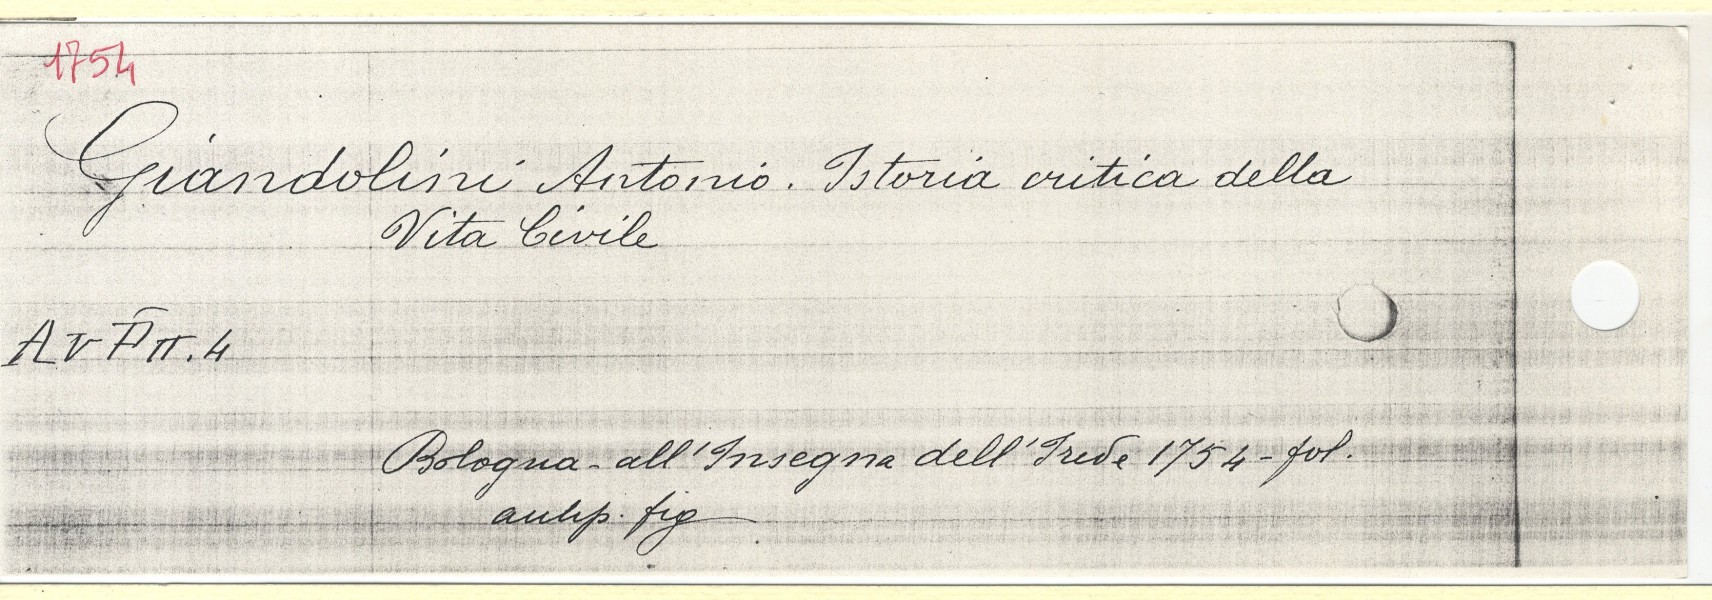 1754
Giandolini Antonio. Istoria critica della
Vita Civile
A V F II. 4
Bologna - all'Insegna dell'Iride 1754 - fol.
antip. fig